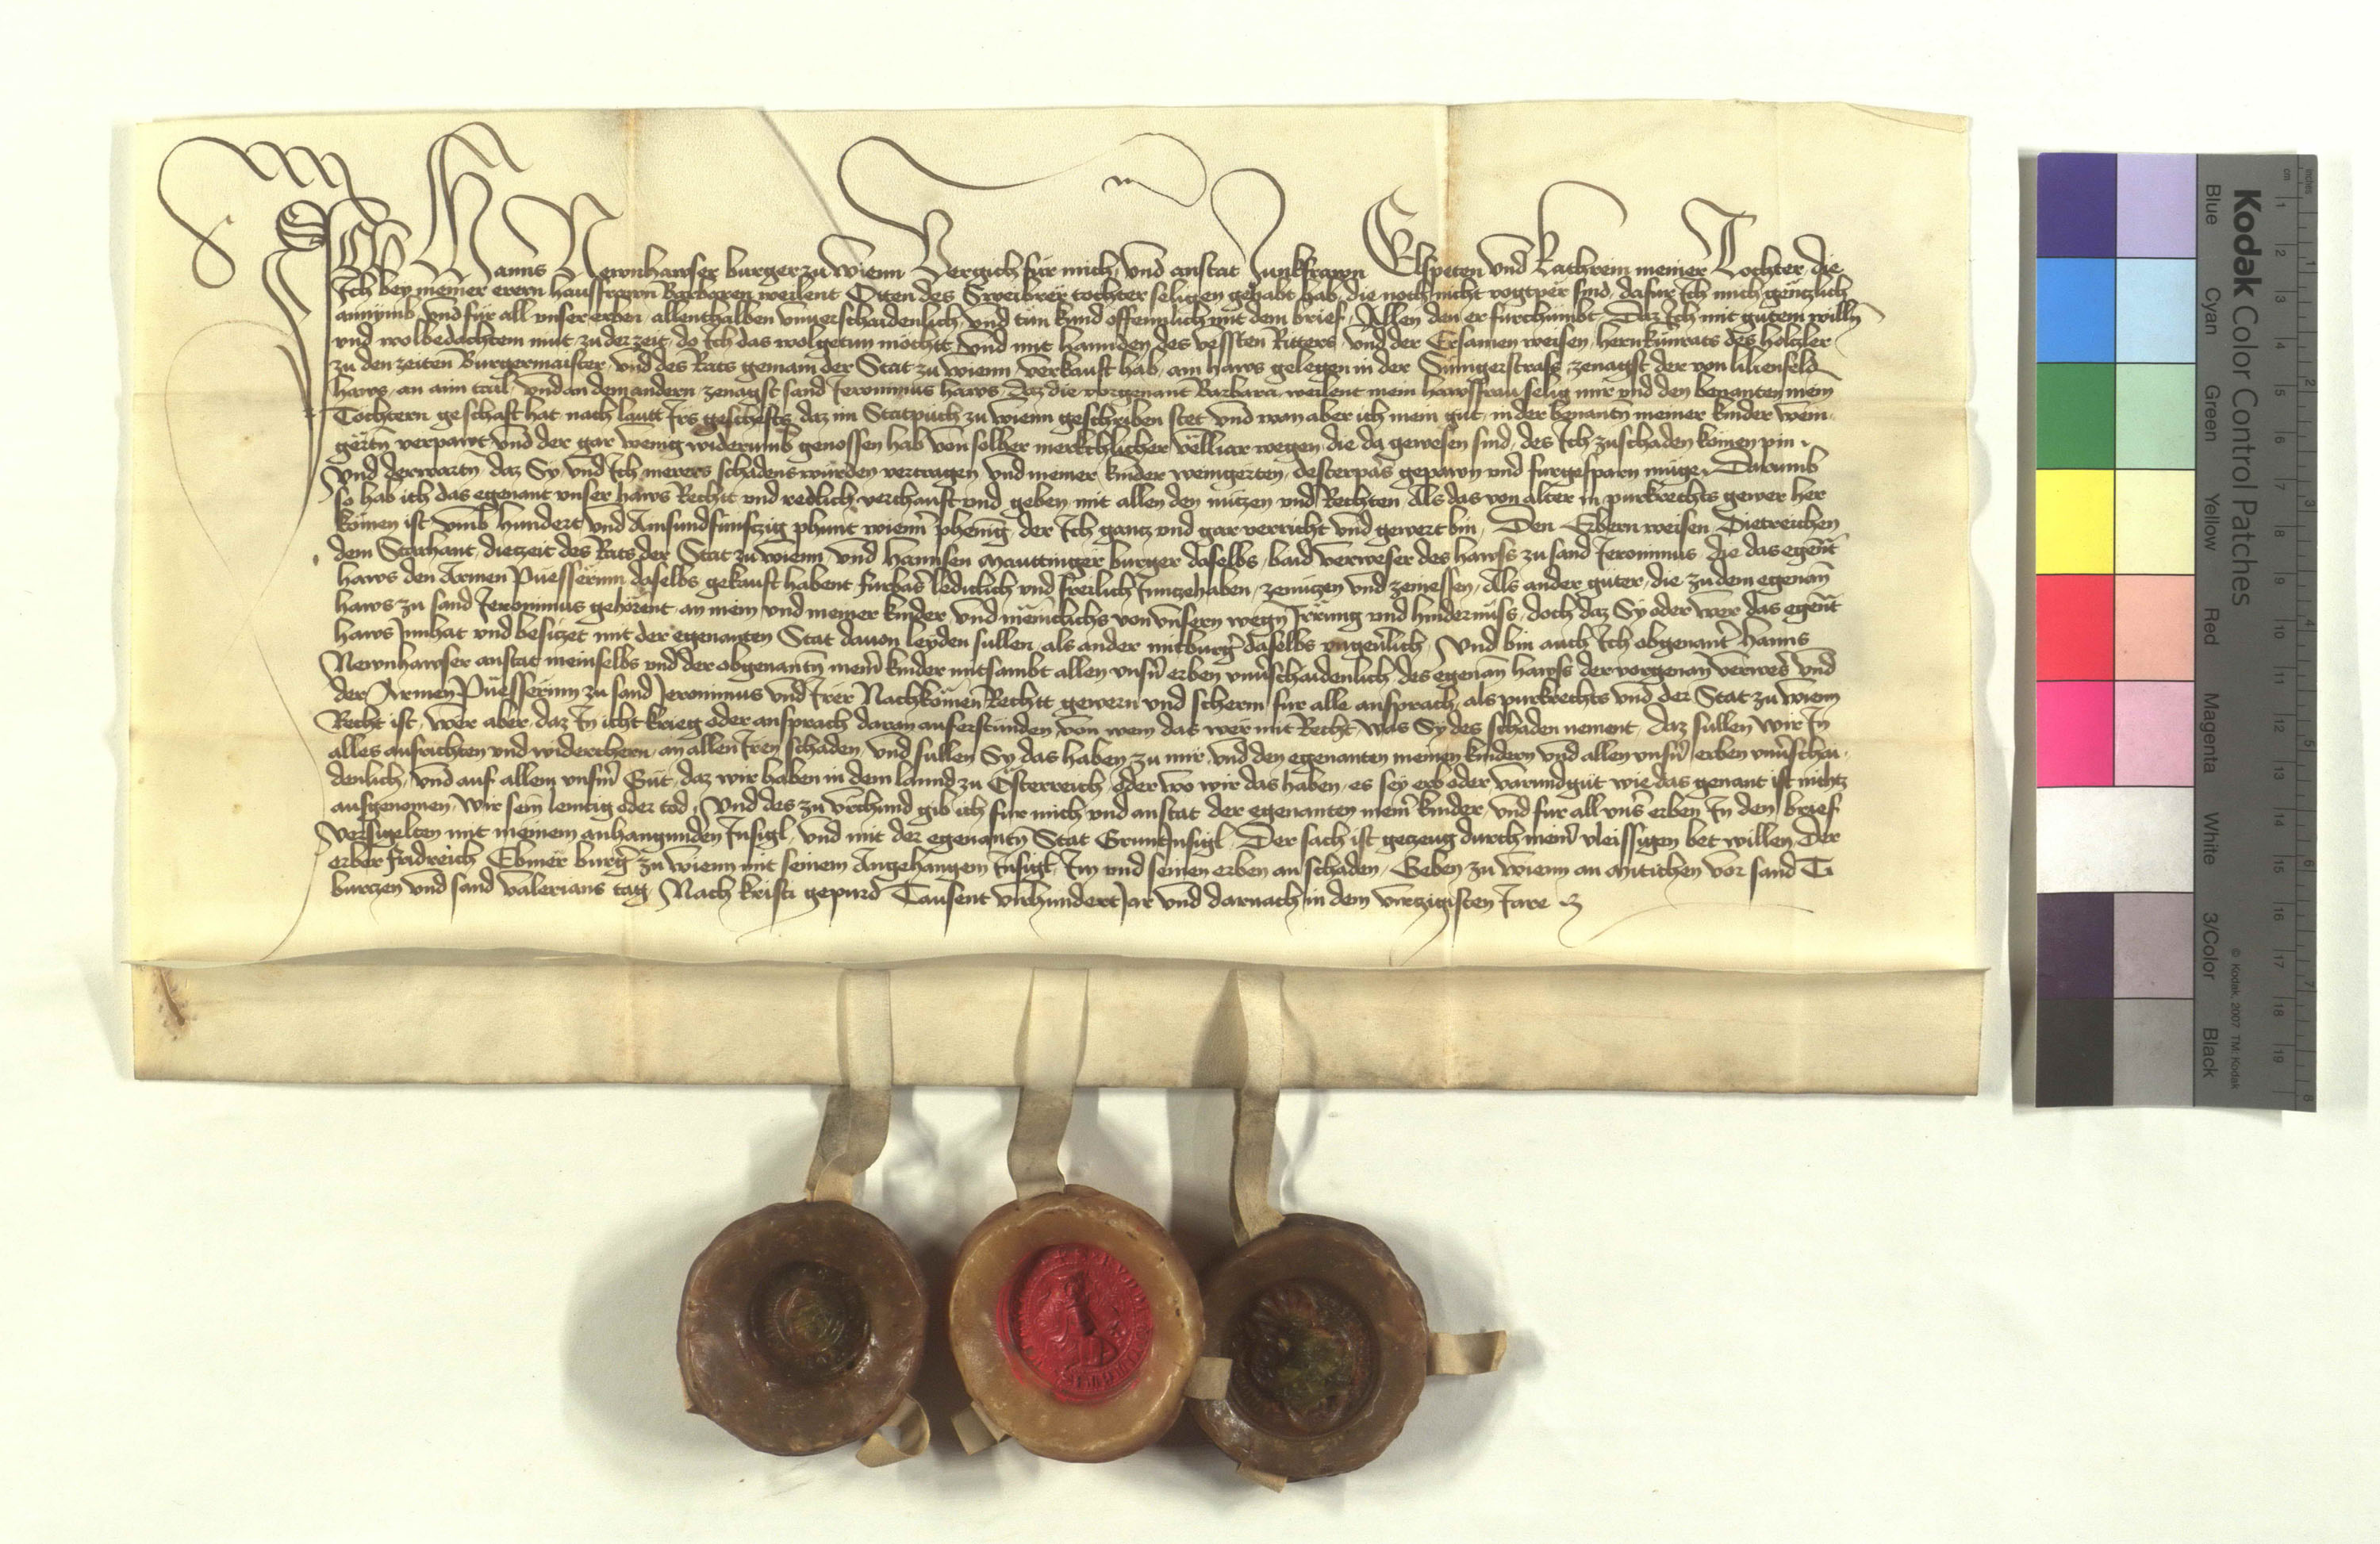 Ich Hanns Newnhawser burger zu Wienn Vergich für mich und anstat Junkfrawn Elspeten und Kathrein meiner Tochter, die
Ich bey meiner erern hausfrawn Barbaren weilent Otten des Sweibrer tochter seligen gehabt hab, die noch nicht vogtper sind, dafur Ich mich genczlich
annymb, und für all unser erben allenthalben unverschaidenlich, und tun kund offennlich mit dem brief, Allen den er furchumbt, Daz Ich mit gutem willn
und wolbedachtem mut, zu der zeit, do Ich das wolgetun mochtt, und mit hannden des vessten Ritters, und der Ersamen weisen, hern Kunrats des Holczler
zu den zeiten Burgermaister, und des Rats gemain der Stat zu Wienn verkauft hab, ain haws gelegen in der Singerstrass, zenagst der von Lilienfeld
haws, an aim tail, und an dem andern zenagst sand Jeronimus haws, daz die vorgenant Barbara weilent mein hawsfrau selig mir und den benanten mein
Tochtern geschaft hat nach lautt Irs geschefts, daz im Statpuch zu Wienn geschriben stet und wan aber ich mein gut, in der benantn meiner kinder wein-
gertn verpawt und der gar wenig widerumb genossen hab von solher merkchlicher velliar wegen, die da gewesen sind, des Ich zuschaden komen pin,
Und derwartn, daz Sy, und Ich merers schadens wurden vertragen und meiner kinder weingerten, desterpas gepawn und furgesparn muge, Darumb
so hab ich das egenant unser haws Recht und redlich verchauft und geben mit allen den nuczen und Rechten, Als das von alter in purkrechts gewer her
komen ist, umb hundert und Ainsundfunfczig phunt wienner phenig, der Ich gancz und gar verricht und gewert bin, Den Erbern weisen Dietreichen
dem Starhant, diczeit des Rats der Stat zu Wienn, und Hannsen Mauttinger burger daselbs, baid verweser des hawss zu sand Jeronimus die das egent
haws den Armen Puesserinn daselbs gekauft habent, furbas ledichlich und freilich Innczehaben, zenuczen und zeniessen, Als ander guter, die zu dem egenan
haws zu sand Jeronimus gehorent, an mein und meiner kinder, und menichlichs von unsern wegn Irrung und hindernuss, doch daz Sy oder wer das egent
haws Innhat und besiczet mit der egenanten Stat davon leyden sullen, als ander mitburger daselbs ungeverlich, Und bin auch Ich obgenanter Hanns
Newnhawser anstat mein selbs und der obgenantn meiner kinder mitsambt allen unsern erben unverschaidenlich, des egenan hawss der vorgenan verweser und
der Armen Puesserinn zu sand Jeronimus und Irer Nachkomen Rechtt gewern und scherm fur alle ansprach, als purkrechts und der Stat zu Wienn
Recht ist, wer aber, daz In icht krieg oder ansprach daran auferstunden, von wem das wer mit Recht, was Sy des schaden nement, daz sullen wir In
alles ausrichten und widerchern, an allen Iren schaden, und sullen Sy das haben, zu mir, und den egenanten meinen kindern und allen unsern erben unverschai-
denlich, und auf allem unserm Gut, daz wir haben in dem lannd zu Osterreich, oder wo wir das haben, es sey erb oder varundgut wie das genant ist nichtz
ausgenomen, wir sein lemtig oder tod, Und des zu urchund gib ich fur mich und anstat der egenanten meiner kinder, und fur all unser erben In den brief
Versigelten mit meinem anhangunden Insigl, und mit der egenantn Stat GruntInsigl, Der sach ist geczeug durch meiner vleissigen bet willen, Der
erber Fridreich Ebmer burger zu Wienn mit seinem Angehangem Insigl, Im und seinen erben an schaden, Geben zu Wienn an Mitichen vor sand Ti
burczen und sand Valerians tag, Nach kristi gepurd Tausent virhundert Jar und darnach in dem virczigisten Jare
Kodak Color Control Patches
Blue Cyan Green Yellow Red Magenta White 3/Color Black
© Kodak, 2007 TM: Kodak
cm 1 2 3 4 5 6 7 8 9 10 11 12 13 14 15 16 17 18 19
inches 1 2 3 4 5 6 7 8